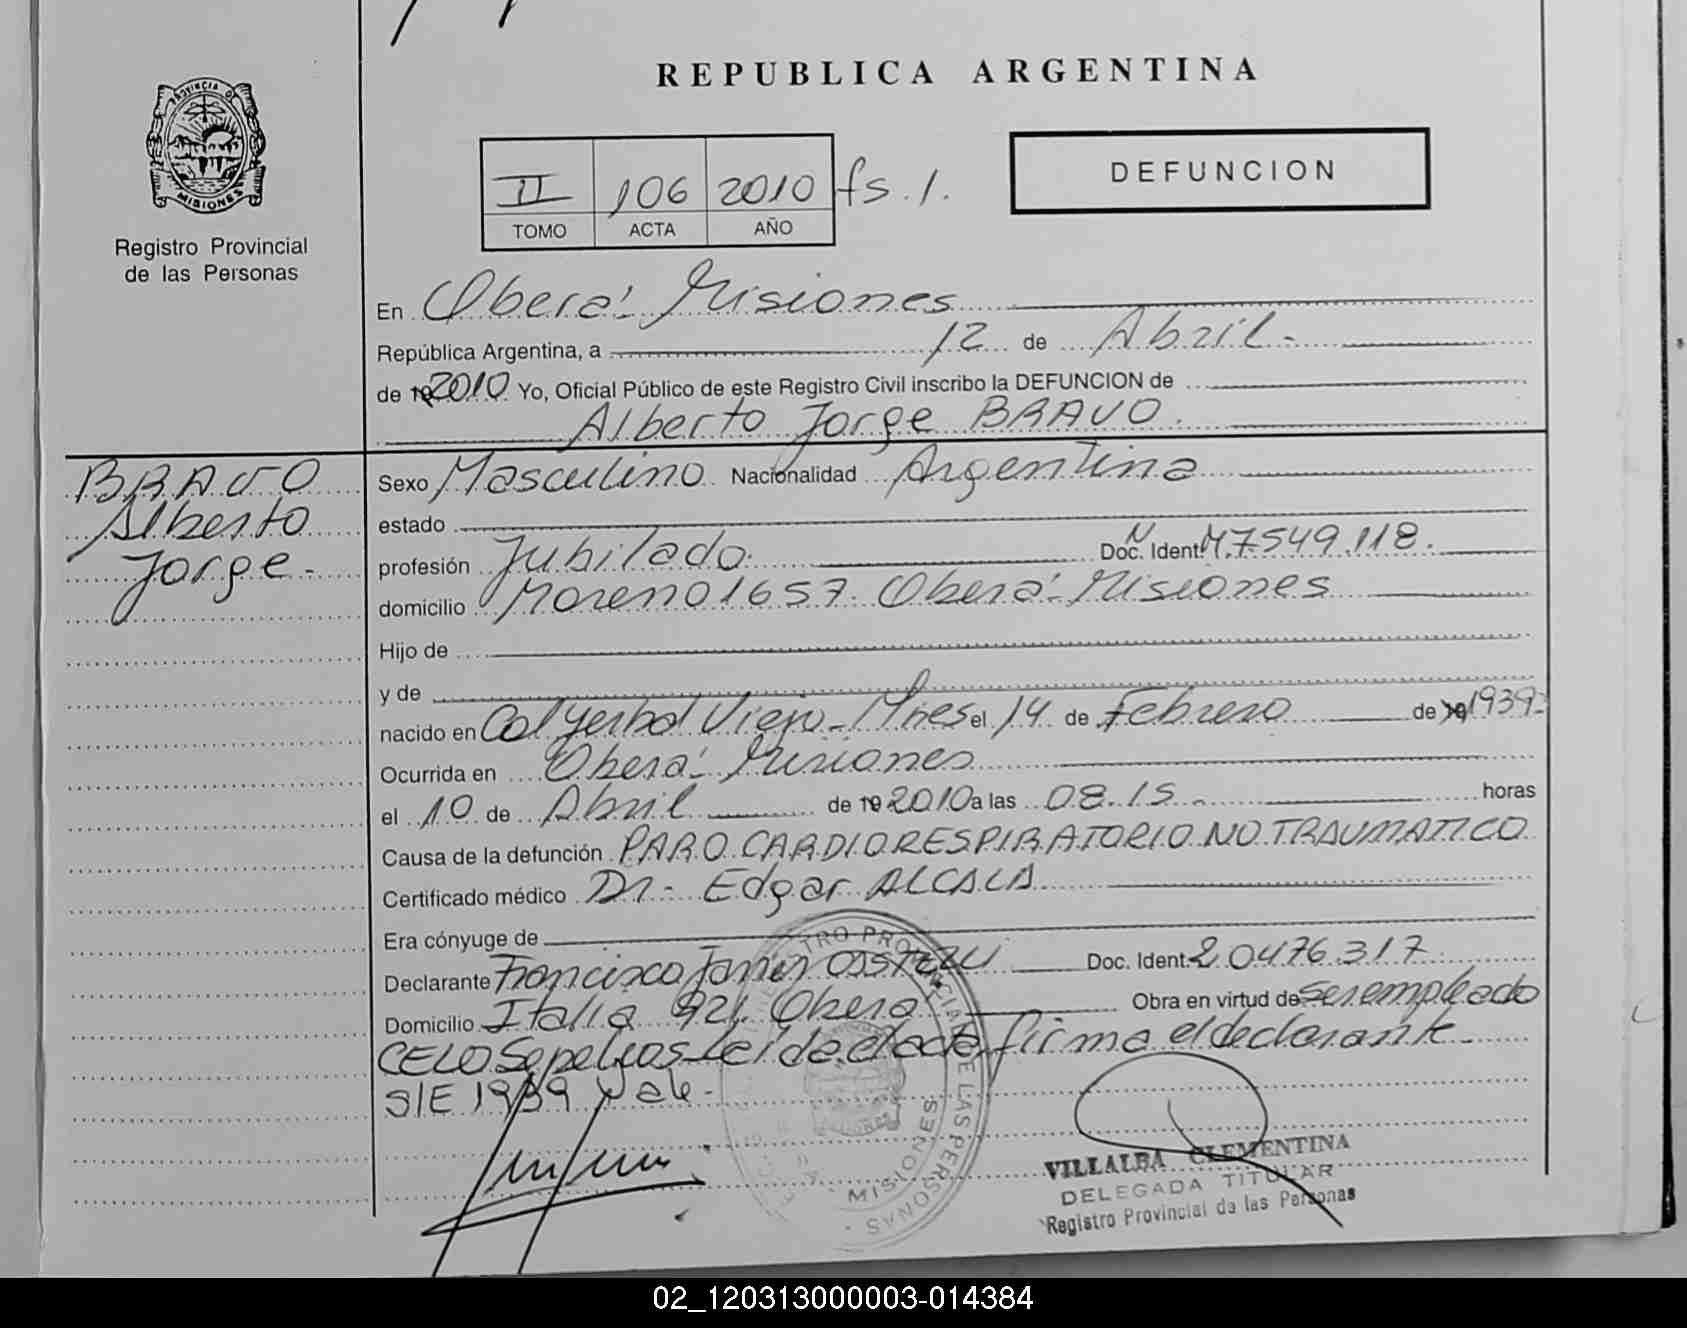 REPUBLICA ARGENTINA
PROVINCIA DE
MISIONES
Registro Provincial
de las Personas
II 106 2010 fs. 1.
TOMO ACTA AÑO
DEFUNCION
En Oberá - Misiones
República Argentina, a 12 de Abril.-
de 19 2010 Yo, Oficial Público de este Registro Civil inscribo la DEFUNCION de
Alberto Jorge BRAVO.
BRAVO
Alberto
Jorge.-
Sexo Masculino Nacionalidad Argentina
estado
profesión Jubilado. Doc. Ident. M.7549.118.
domicilio Moreno 1657. Oberá - Misiones
Hijo de
y de
nacido en Col Yerbal Viejo - Mnes el 14 de Febrero de 19 1939-
Ocurrida en Oberá - Misiones
el 10 de Abril de 19 2010 a las 08.15.- horas
Causa de la defunción PARO CARDIORESPIRATORIO NO TRAUMATICO
Certificado médico Dr.- Edgar ALCALA
Era cónyuge de
Declarante Francisco Javier Doc. Ident. 20476.317.
Domicilio Italia 921. Oberá Obra en virtud de ser empleado
CELO Sepelios - Leída el acta firma el declarante -
S/E 1939 vale.-
MISIONES
VILLALBA CLEMENTINA
DELEGADA TITULAR
Registro Provincial de las Personas
02_120313000003-014384